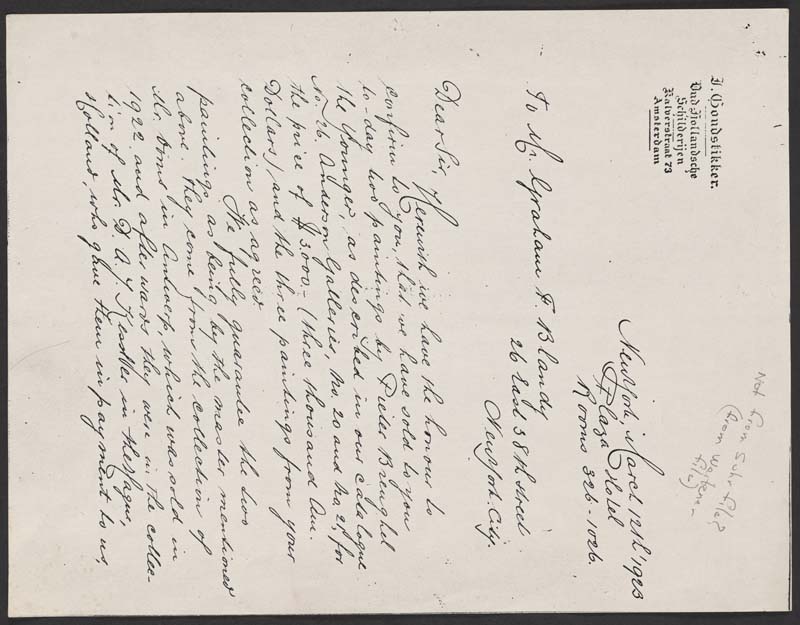 J. Goudstikker.
Oud Hollandsche
Schilderijen
Kalverstraat 73
Amsterdam
Not from Suhr file?
(from
file)
New York, March 12th 1923
Plaza Hotel
Rooms 326-1026.
To Mr. Graham F. Blandy
26 East 38th street
New York. City.
Dear Sir, Herewith we have the honour to
confirm to you, that we have sold to you
to-day two paintings by Pieter Breughel
the Younger, as described in our catalogue
No. 26. Anderson Galleries, No. 20 and No. 21, for
the price of $ 3.000.- (three thousand Am.
Dollars) and the three paintings from your
collection as agreed
We fully guarantee the two
paintings as being by the master mentioned
above. They come from the collection of
Mr. in Antwerp which was sold in
1922 and afterwards they were in the collec-
tion of Mr. D. A. J. Kessler in the Hague,
Holland, who gave them in payment to us,